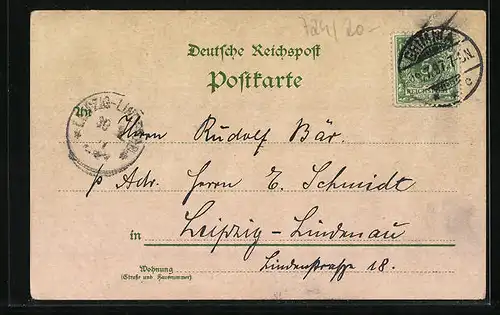 724/20-
Deutsche Reichspost
Postkarte
An
Herrn Rudolf Bär.
p Adr. Herrn E. Schmidt
in Leipzig-Lindenau
Lindenstraße 18.
Wohnung
(Straße und Hausnummer)
GRIMMA
LEIPZIG-LINDENAU